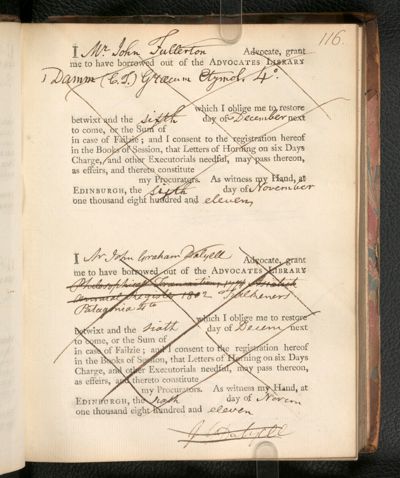 116.
I Mr John Fullerton Advocate, grant
me to have borrowed out of the ADVOCATES LIBRARY
1 Damm (C.T.) Græcum Etymol. 4o.
which I oblige me to restore
betwixt and the sixth day of December next
to come, or the Sum of
in case of Failzie; and I consent to the registration hereof
in the Books of Session, that Letters of Horning on six Days
Charge, and other Executorials needful, may pass thereon,
as effeirs, and thereto constitute
my Procurators. As witness my Hand, at
EDINBURGH, the sixth day of November
one thousand eight hundred and eleven,
I Mr John Graham Dalyell Advocate, grant
me to have borrowed out of the ADVOCATES LIBRARY
Philosophical Transactions Asiatick
Annual Register 1802 Falkeners
Patagonia 4to
which I oblige me to restore
betwixt and the sixth day of Decem next
to come, or the Sum of
in case of Failzie; and I consent to the registration hereof
in the Books of Session, that Letters of Horning on six Days
Charge, and other Executorials needful, may pass thereon,
as effeirs, and thereto constitute
my Procurators. As witness my Hand, at
EDINBURGH, the sixth day of Novem
one thousand eight hundred and eleven
J G Dalyell